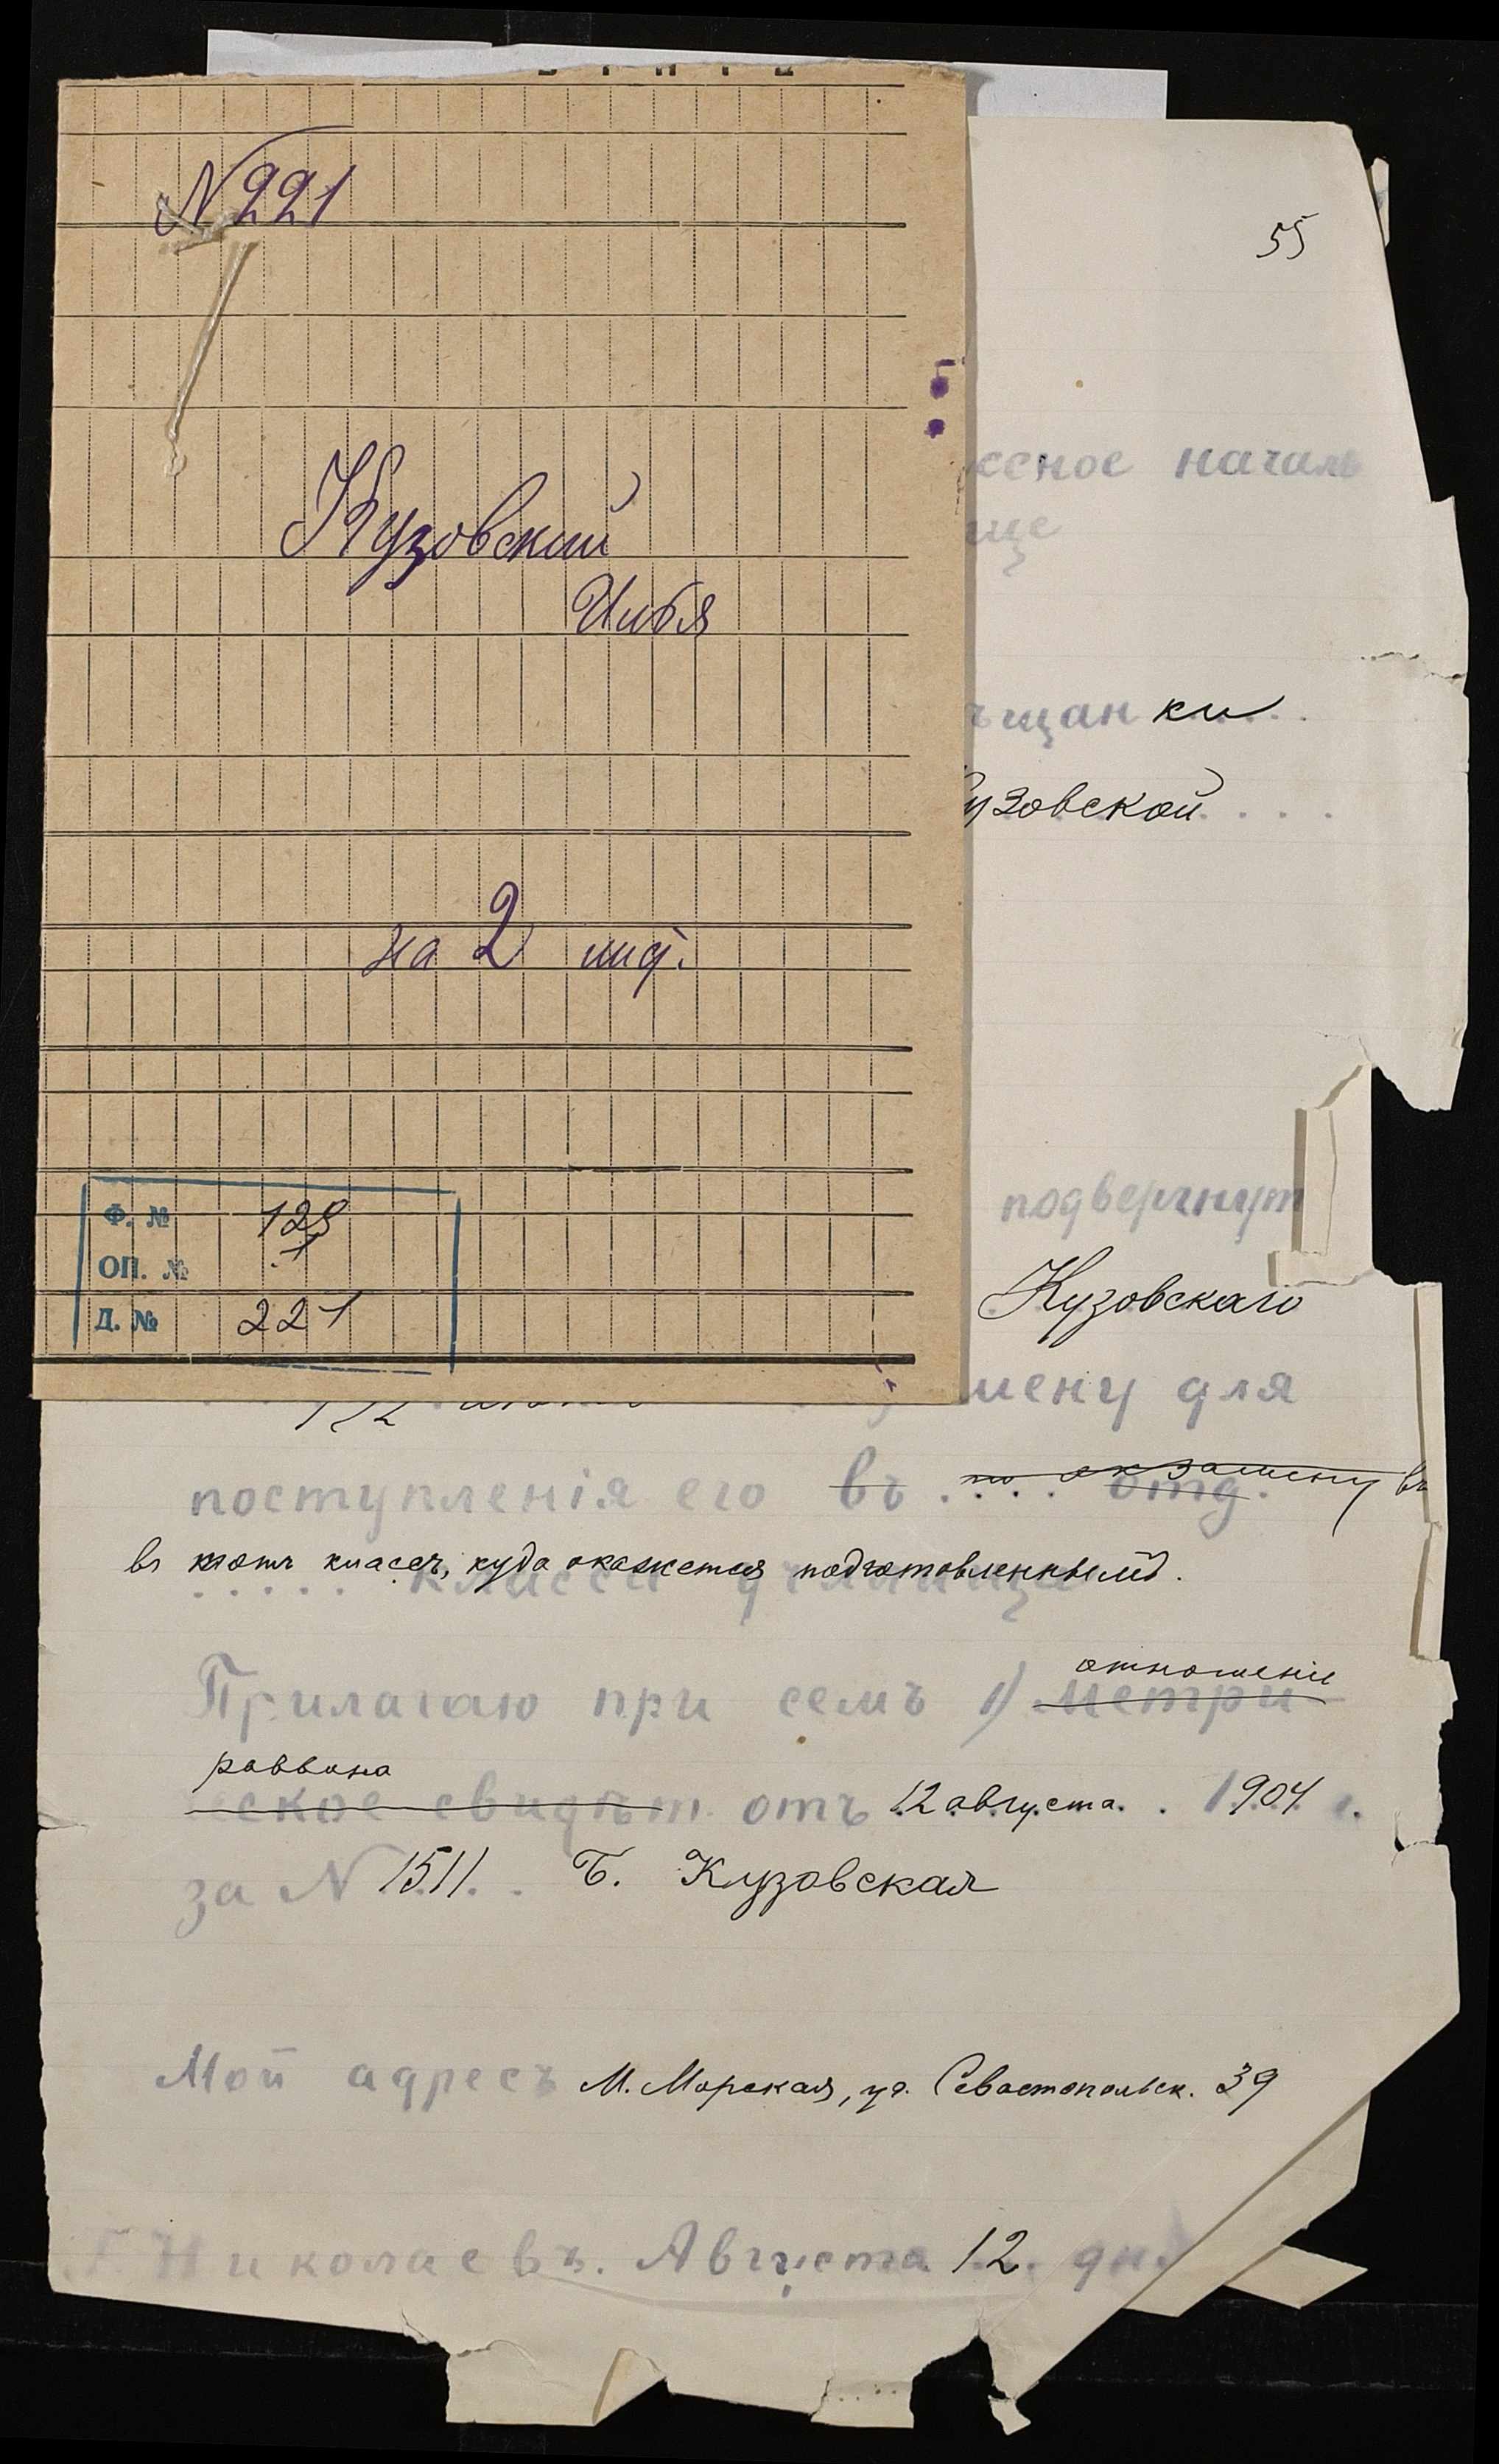 N 221
Кузовский
на 2 лид.
Ф. № 129
ОП. № 1
Д. № 221
55
ксное началь
ще
ѣщанки
узовской
подвергнут
Кузовскаго
мену для
поступленія его въ .... отд.
по экзамену въ
въ тотъ классъ, куда окажется подготовленнымъ.
класса училища
отношеніе
Прилагаю при семъ 1) метри
раввина
ское свидѣт. отъ 12 августа. 1904 г.
за N 1511. Б. Кузовская
Мой адресъ М. Морская, уг. Севастопольск. 39
Г. Николаевъ. Августа 12. дня